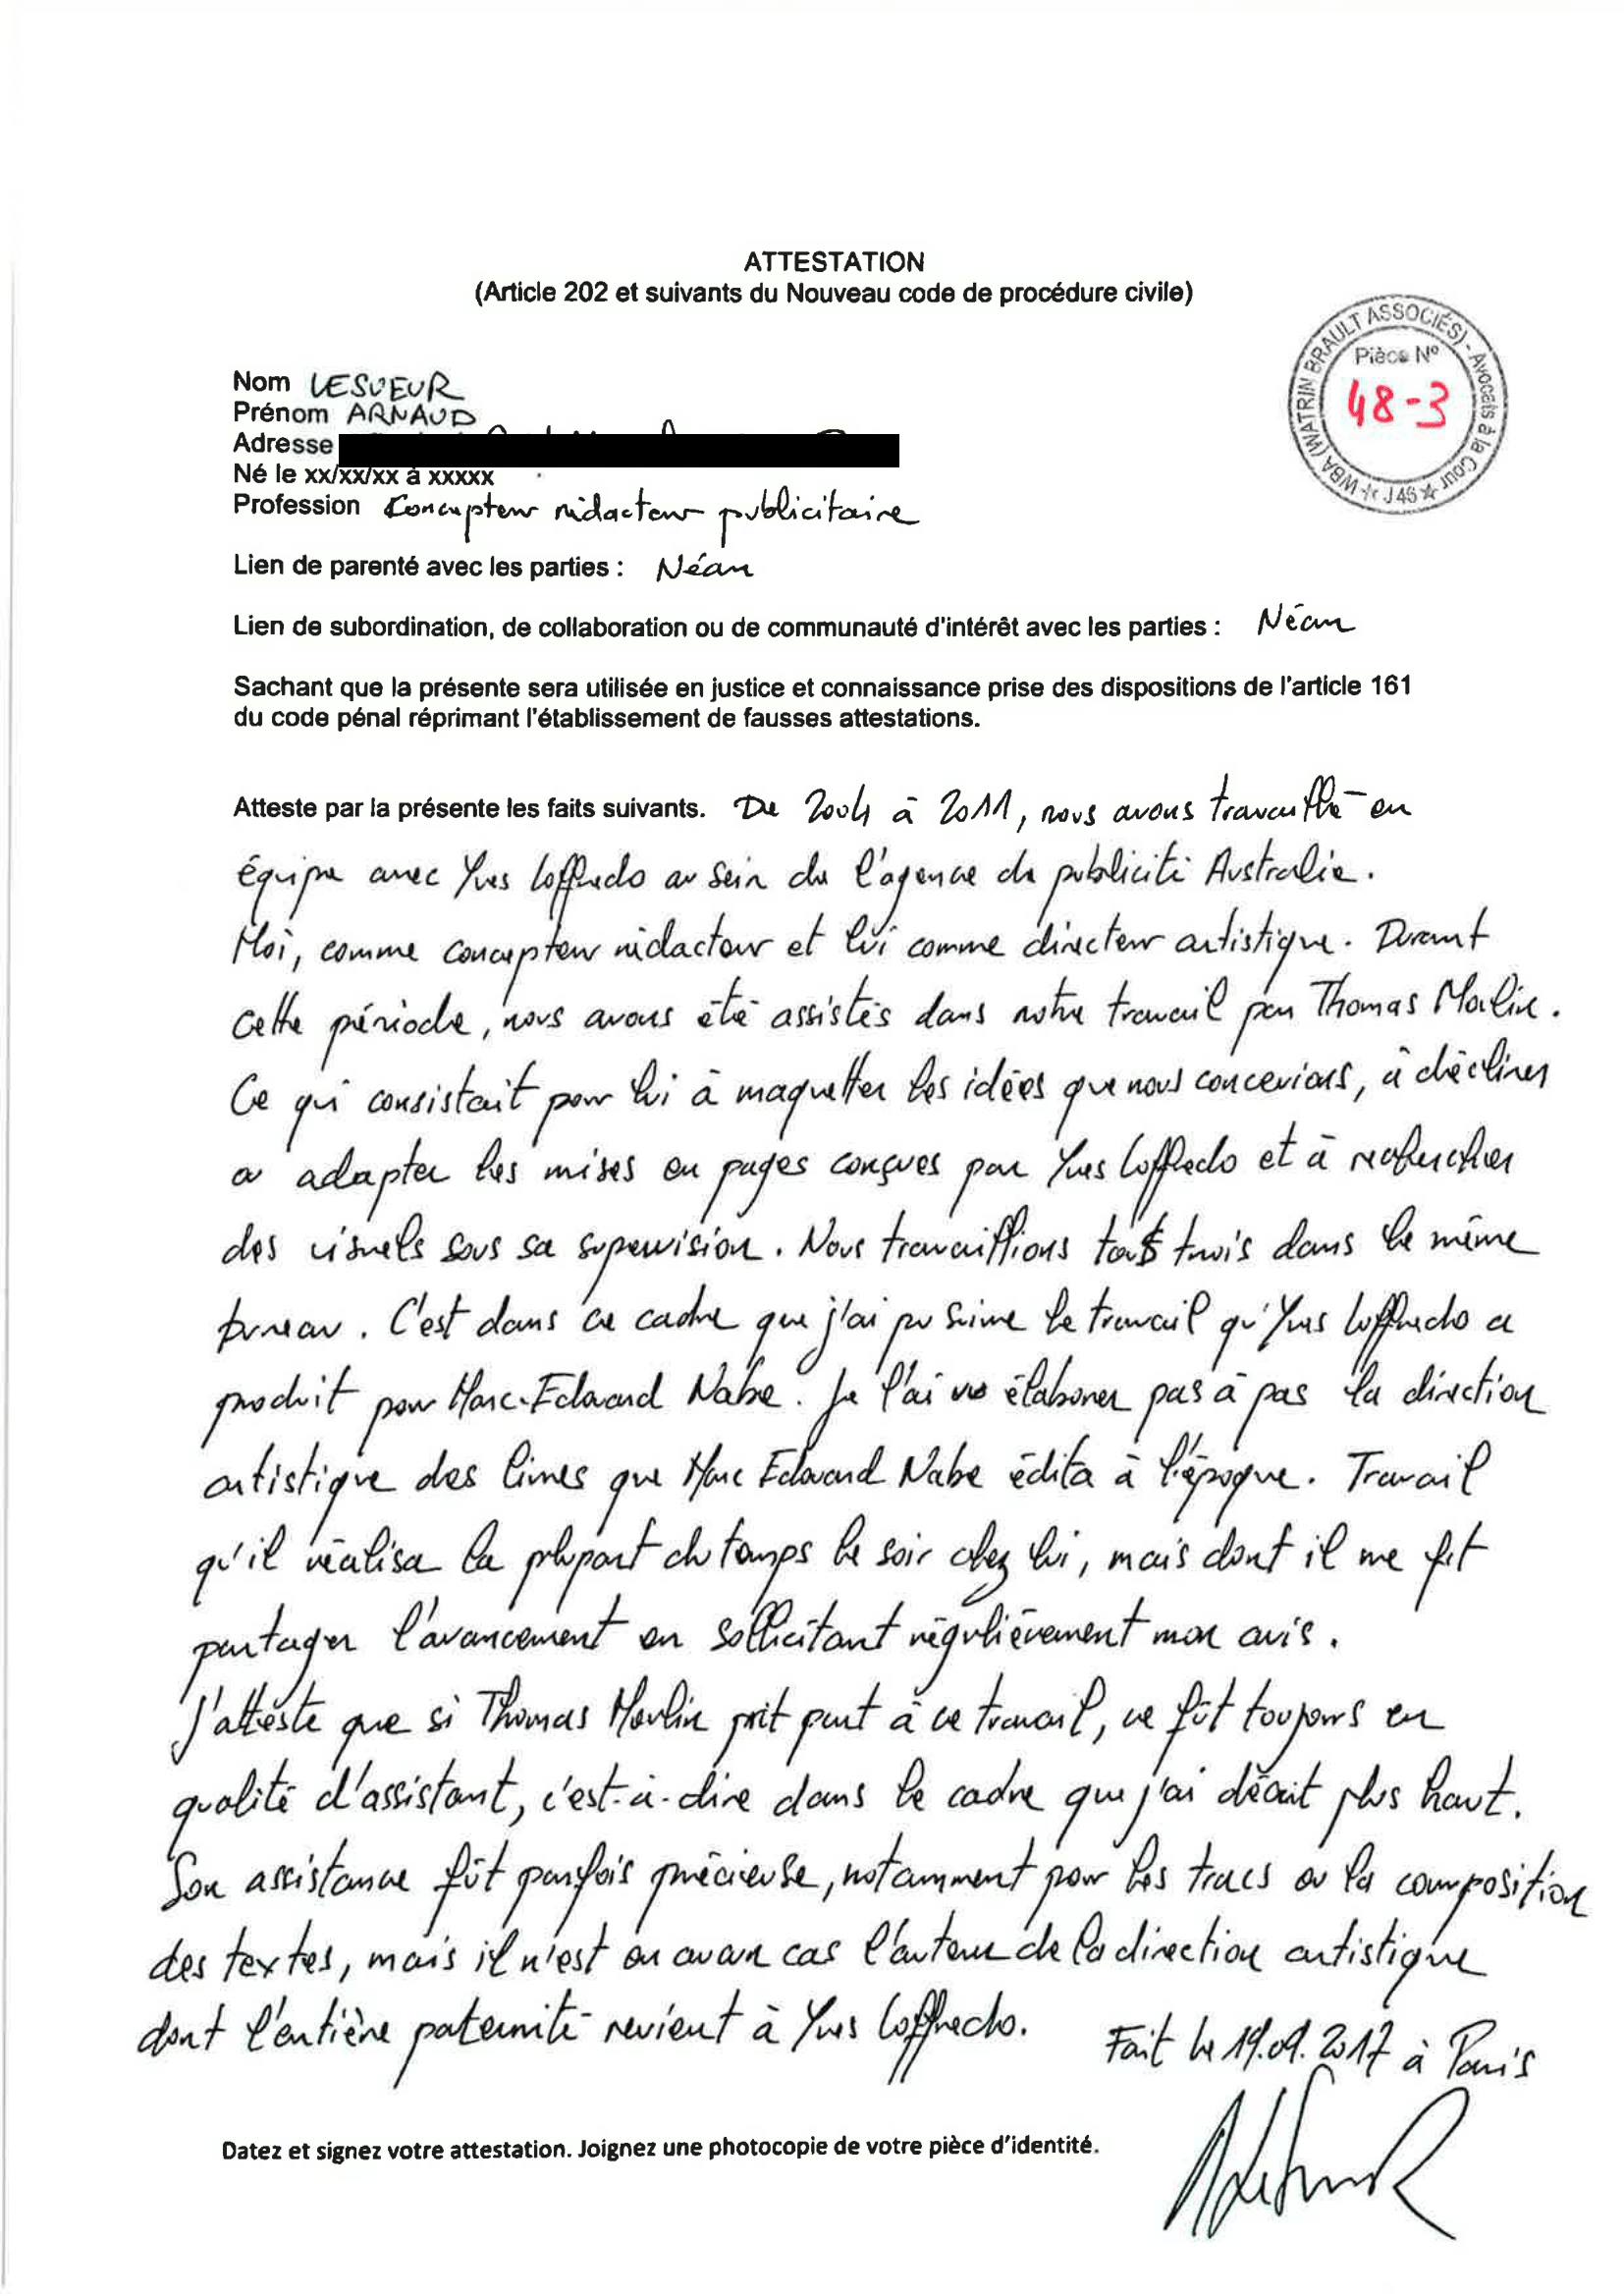 ATTESTATION
(Article 202 et suivants du Nouveau code de procédure civile)
WBA (WATRIN BRAULT ASSOCIÉS) - Avocats à la Cour ☆ J46 ☆
Pièce N°
48-3
Nom LESUEUR
Prénom ARNAUD
Adresse
Né le xx/xx/xx à xxxxx
Profession Concepteur rédacteur publicitaire
Lien de parenté avec les parties : Néan
Lien de subordination, de collaboration ou de communauté d'intérêt avec les parties : Néan
Sachant que la présente sera utilisée en justice et connaissance prise des dispositions de l'article 161
du code pénal réprimant l'établissement de fausses attestations.
Atteste par la présente les faits suivants. De 2004 à 2011, nous avons travaillé en
équipe avec Yves Loffredo au sein de l'agence de publicité Australie.
Moi, comme concepteur rédacteur et lui comme directeur artistique. Durant
cette période, nous avons été assistés dans notre travail par Thomas Morlin.
Ce qui consistait pour lui à maquetter les idées que nous concevions, à décliner
ou adapter les mises en pages conçues par Yves Loffredo et à rechercher
des visuels sous sa supervision. Nous travaillions tous trois dans le même
bureau. C'est dans ce cadre que j'ai pu suivre le travail qu'Yves Loffredo a
produit pour Marc-Edouard Nabe. Je l'ai vu élaborer pas à pas la direction
artistique des livres que Marc Edouard Nabe édita à l'époque. Travail
qu'il réalisa la plupart du temps le soir chez lui, mais dont il me fit
partager l'avancement en sollicitant régulièrement mon avis.
J'atteste que si Thomas Morlin prit part à ce travail, ce fût toujours en
qualité d'assistant, c'est-à-dire dans le cadre que j'ai décrit plus haut.
Son assistance fût parfois précieuse, notamment pour les tracs ou la composition
des textes, mais il n'est en aucun cas l'auteur de la direction artistique
dont l'entière paternité revient à Yves Loffredo.
Fait le 19.09.2017 à Paris
Datez et signez votre attestation. Joignez une photocopie de votre pièce d'identité.